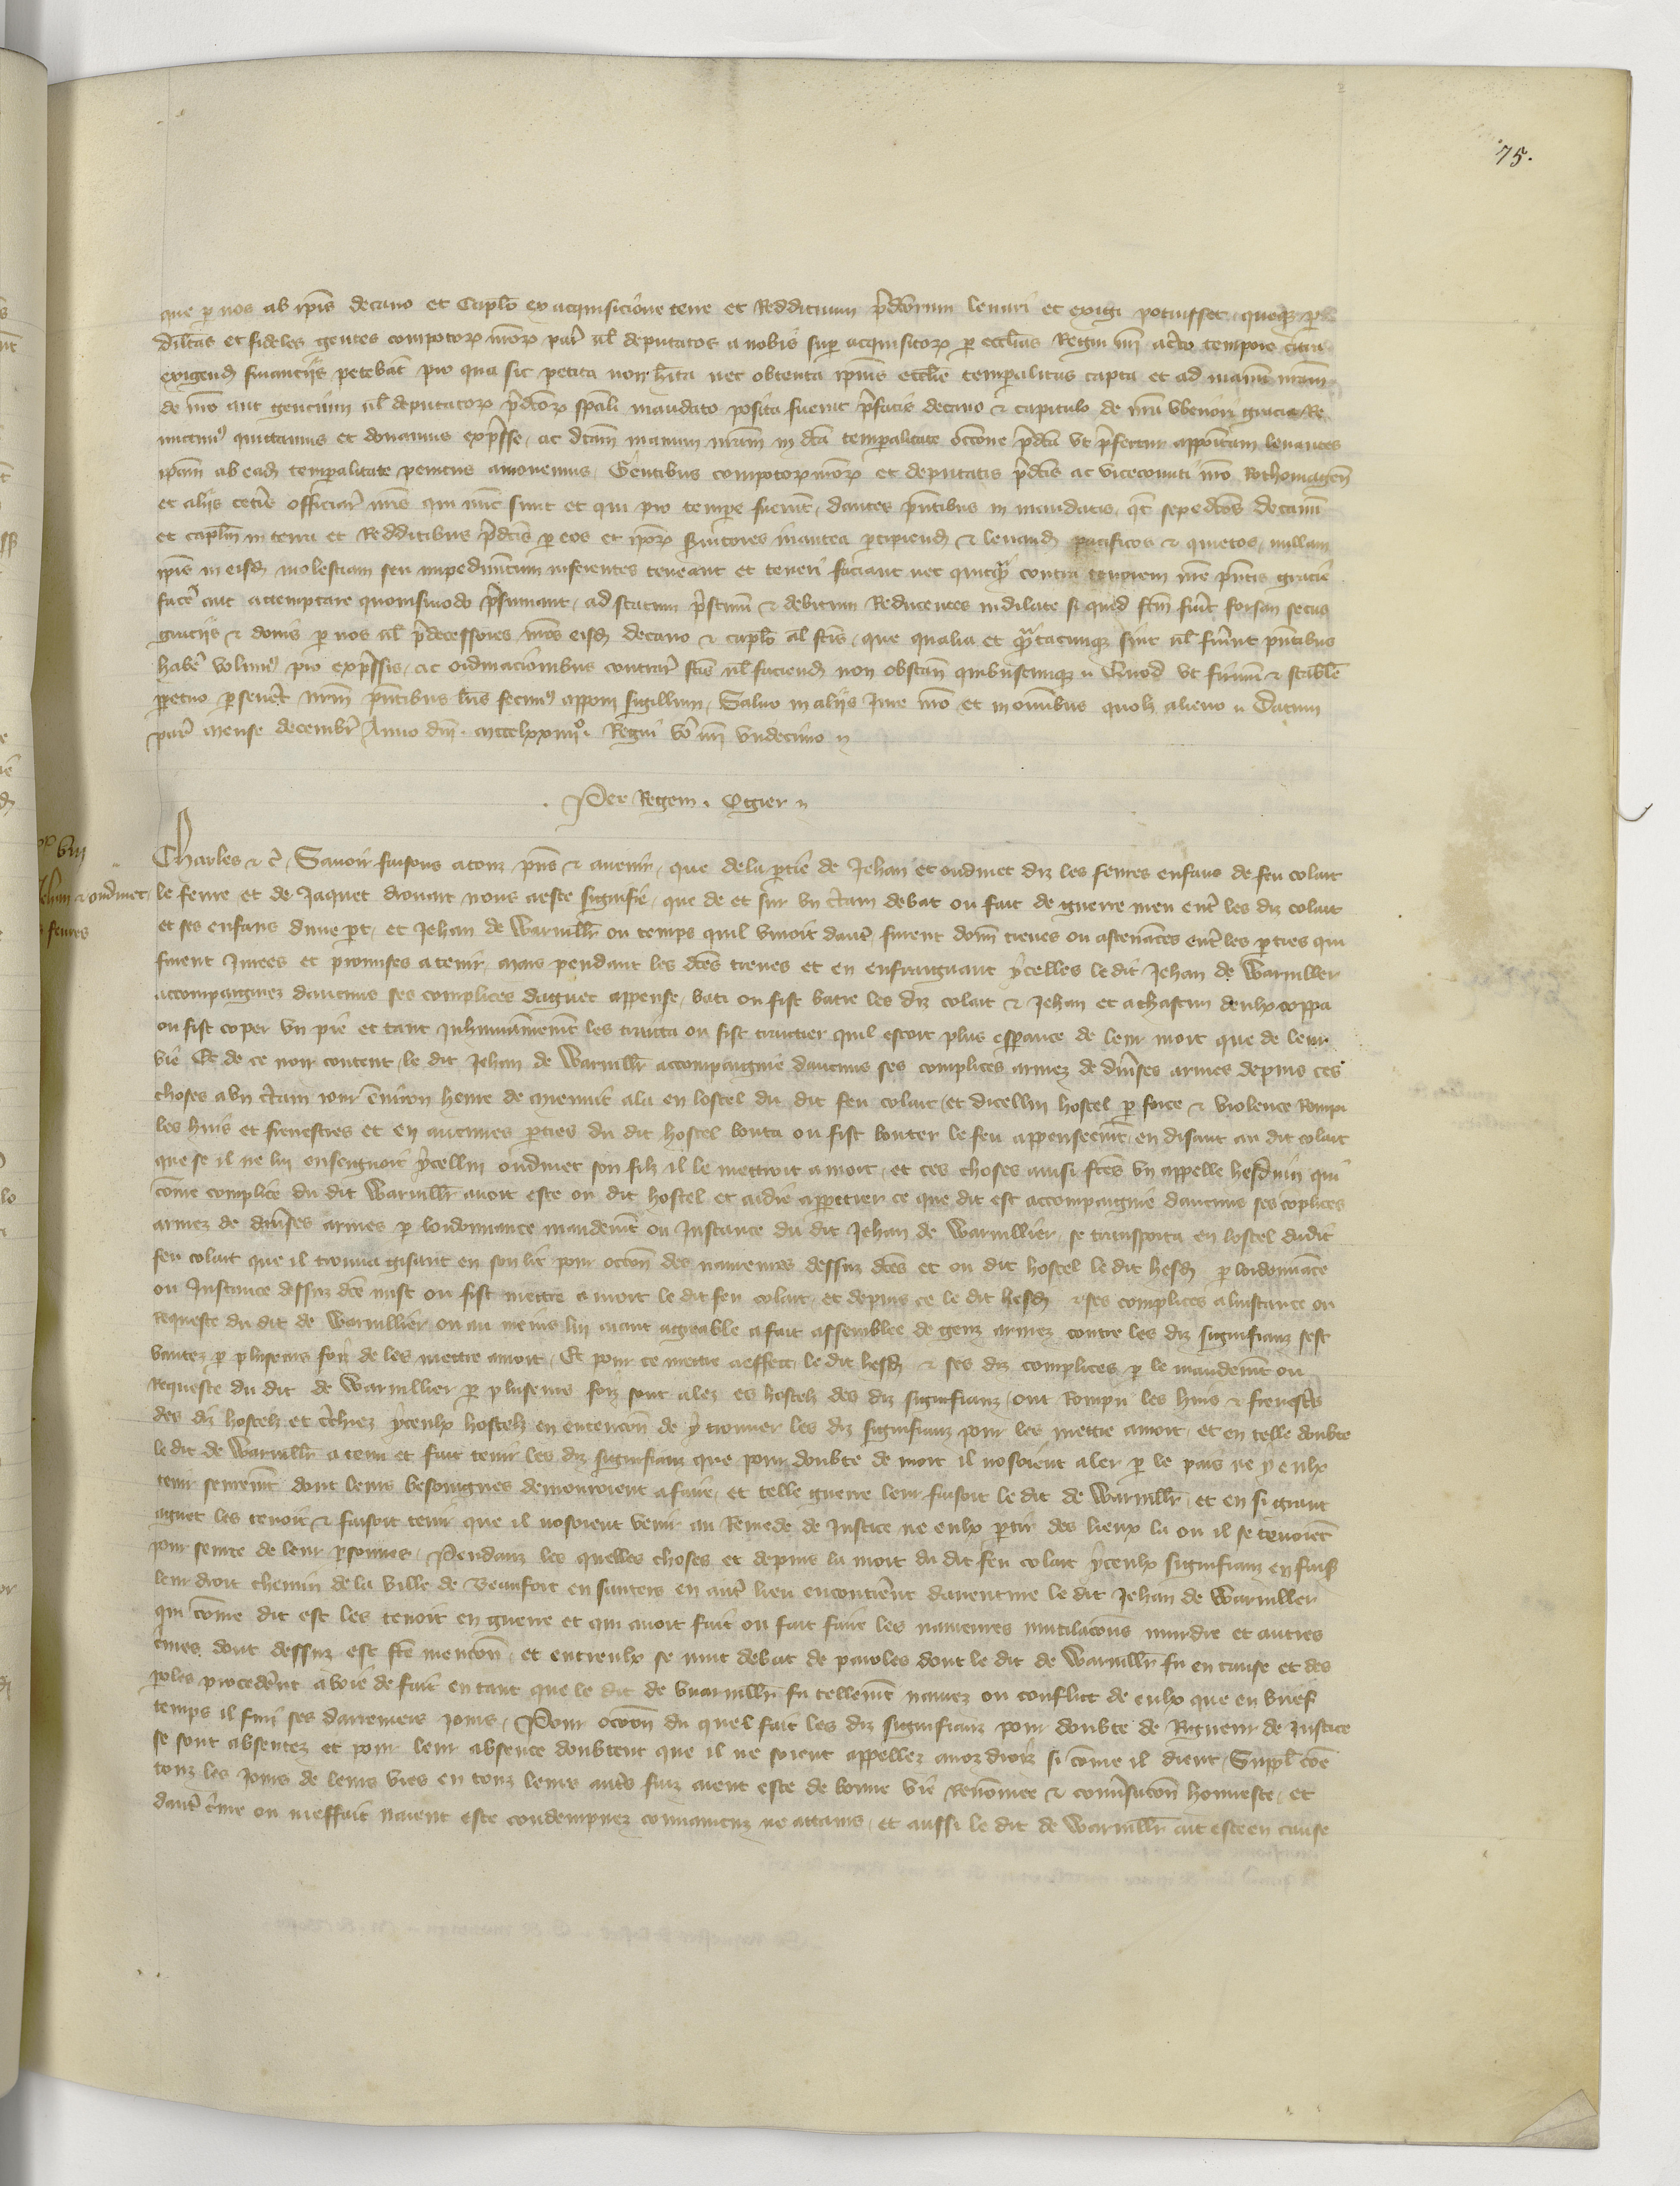 75.
que p nos ab ip̄is decano et Caplo ex acquisicione terre et Reddituum p̄dcorum leuari et exigi potuisset queque per
dilc̄as et fideles gentes compotor nr̄or par vl deputatos a nobis sup acquisitor p ecclias Regni nr̄i acto tempore citra
exigend financiis petebat pro qua sic petita non hita nec obtenta ip̄ius ecclie temporalitas capta et ad manū nr̄am
de nr̄o aut gencium vl deputator p̄dcor sp̄ali mandato posita fuerit p̄fatis decano & capitulo de nr̄a vberiori gracia Re
mittim quittamus et donamus exp̄sse ac dc̄am manum nr̄am in dc̄a temporalitate occ̄one p̄dc̄a vt p̄fertur appoītam leuantes
ip̄am ab ead temporalitate penitus amouemus Gentibus compotor nr̄or et deputatis p̄dc̄is ac vicecomiti nr̄o Rothomagen̄
et aliis ceteris officiar nr̄is qui nūc sunt et qui pro tempore fuerint dantes p̄ntibus in mandatis qt̄ sepedc̄os decanū
et caplm in terra et Redditibus p̄dc̄is p eos et ip̄or s̄uitores inantea p̄cipiend & leuand pacificos & quietos nullam
ip̄is in eisd molestiam seu impedimentum inferentes teneant et teneri faciant nec quicq̄ contra tenorem nr̄e p̄ntis gracie
facere aut attemptare quouismodo p̄sumant ad statum p̄stinū & debitum Reducentes indilate si quid fc̄m fuit forsan secus
graciis & donis p nos vl p̄decessores nr̄os eisd decano & caplo al fc̄is que qualia et quātacumque sint vl fuerint p̄ntibus
habere volum pro exp̄ssis ac ordinacionibus contrar fc̄is vl faciend non obstan̄ quibuscumque Quod vt firmū & stabile
ppetuo p seueret nr̄m p̄ntibus lr̄is fecim apponi sigillum Saluo in aliis Jure nr̄o et in omnibus quolz alieno Datum
par mense decembr Anno dn̄i mccclxxiiiiº Regni vo nr̄i vndecimo
Per Regem Ogier
Charles & c̄ Sauoir faisons a touz p̄ns & auenir que de la p̄tie de Jehan et oudinet diz les feures enfans de feu colart
le feure et de Jaquet drouart nous a este signifie que de et sur vn c̄tain debat ou fait de guerre meu ent̄ les diz colart
et ses enfans dune pt et Jehan de Waruill̄r ou temps quil viuoit daut̄ furent donn̄ trieues ou astenances ent̄ les pties qui
furent Jurees et promises a tenir mais pendant les dc̄es trieues et en enfraignant ycelles le dit Jehan de Waruiller
accompaignez daucuns ses complices daguet appense bati ou fist batre les diz colart & Jehan et a chascun deulx coppa
ou fist coper vn pie et tant Jnhumainemēt les traitta ou fist traictier quil estoit plus esperance de leur mort que de leur
vie Et de ce non content le dit Jehan de Waruill̄r accompaignie daucuns ses complices armez de diūses armes depuis ces
choses a vn c̄tain iour enuiron heure de mienuit ala en lostel du dit feu colart et dicellui hostel p force & violence Rompi
les huis et fenestres et en aucunes pties du dit hostel bouta ou fist bouter le feu appenseemt en disant au dit colart
que se il ne lui enseignoit ycellui oudinet son filz il le mettroit a mort et ces choses ainsi fc̄es vn appelle hesdnin qui
come complice du dit Waruill̄r auoit este ou dit hostel et aidie a ppetrer ce que dit est accompaignie daucuns ses cōplices
armez de diūses armes p lordonnance mandemt ou Jnstance du dit Jehan de Waruillier se transporta en lostel dudit
feu colart que il trouua gisant en son lit pour occon̄ des naureures dessuz dc̄es et ou dit hostel le dit hesd p lordonnāce
ou Jnstance dessuz dc̄e mist ou fist mettre a mort le dit feu colart et depuis ce le dit hesd & ses complices a linstance ou
Requeste du dit de Waruillier ou au meins lui aiant agreable a fait assemblee de genz armez contre les diz signifianz sest
vantez p pluseurs foiz de les mettre a mort Et pour ce mettre a effect le dit hesd & ses diz complices p le mandemt ou
Requeste du dit de Waruillier p pluseurs foiz sont alez es hostelz des diz signifianz ont Rompu les huis & fenestres
des diz hostelz et c̄chiez yceulx hostelz en entencōn de y trouuer les diz signifianz pour les mettre a mort et en telle doubte
le dit de Waruill̄r a tenu et fait tenir les diz signifianz que pour doubte de mort il nosoient aler p le pais ne y eulx
tenir seuremt dont leurs besoingnes demouroient a faire et telle guerre leur faisoit le dit de Waruill̄r et en si grant
aguet les tenoit & faisoit tenir que il nosoient venir au Remede de Justice ne eulx ptir des lieux la ou il se tenoiēt
pour seurte de leur psonnes Pendanz les quelles choses et depuis la mort du dit feu colart yceulx signifianz en fais
leur droit chemin de la ville de Beaufort en santers en aut̄ lieu encontrer̄ent dauenture le dit Jehan de Waruiller
qui come dit est les tenoit en guerre et qui auoit fait ou fait faire les naureures mutilacōns murdre et autres
c̄mes dont dessuz est fc̄e mencōn et entreulx se mut debat de paroles dont le dit de Waruill̄r fu en cause et des
poles procederent a voie de fait en tant que le dit de Waruill̄r fu tellemt naurez ou conflict de eulx que en brief
temps il fini ses darreniers iours Pour occōn du quel fait les diz signifianz pour doubte de Rigueur de Justice
se sont absentez et pour leur absence doubtent que il ne soient appellez auoz droiz si come il dient Suppl̄ cōe
touz les Jours de leurs vies en touz leurs aut̄s faiz aient este de bonne vie Renōmee & conūsacōn honneste et
daut̄ c̄me ou meffait naient este condempnez conuaincuz ne attains et aussi le dit de Waruill̄r ait este en cause
viii
Jehan & oudinet
feures